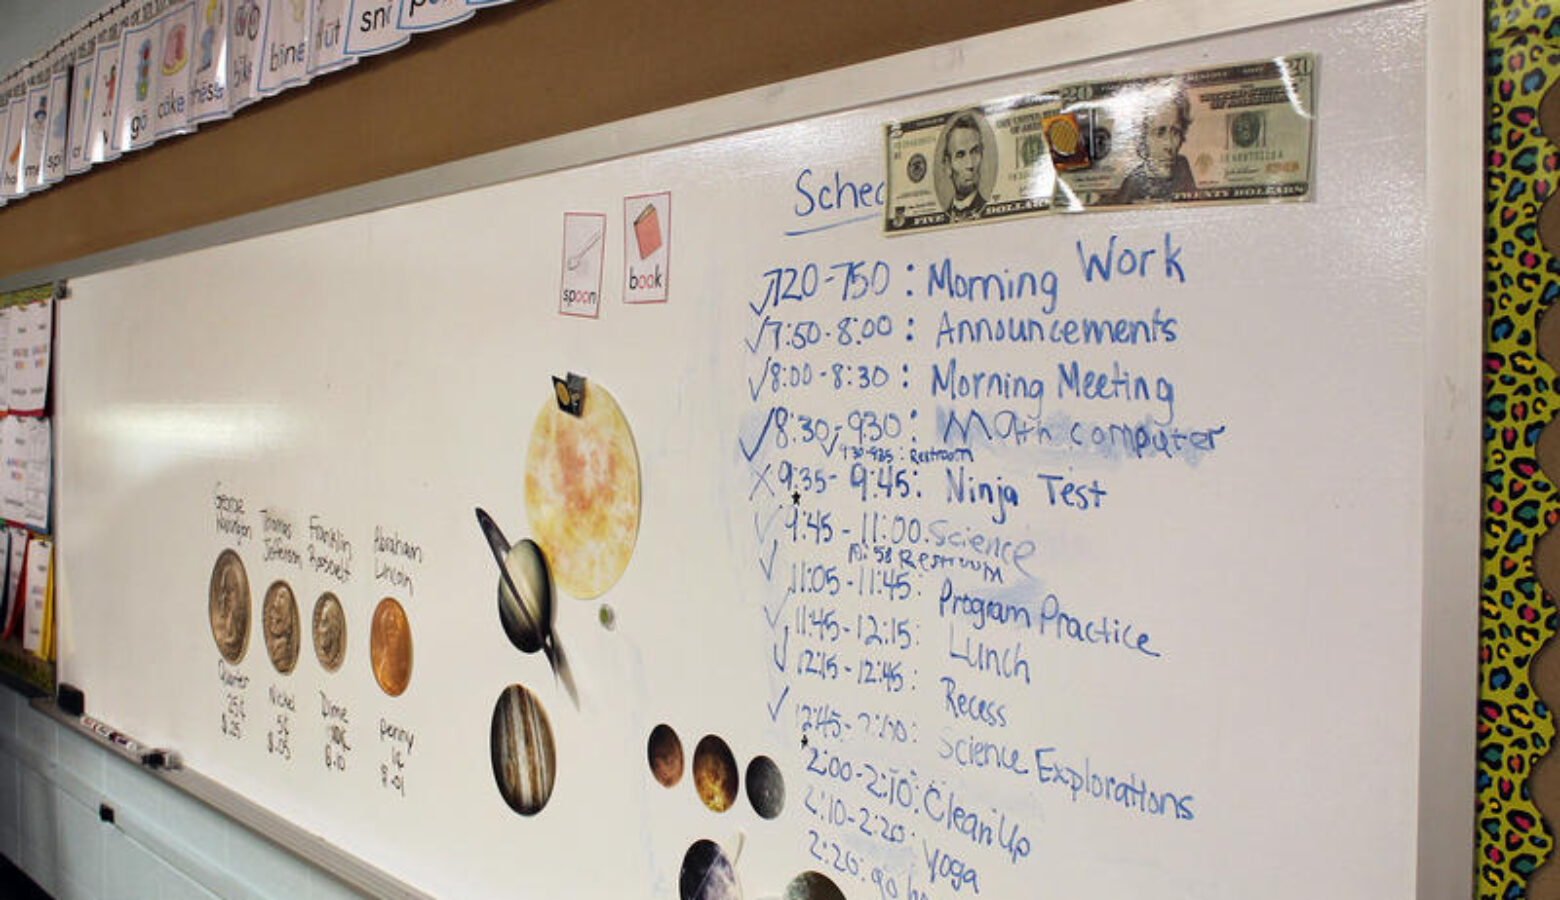 go
cake
bike
Sched
FIVE DOLLARS
20
TWENTY DOLLARS
spoon
book
720-750: Morning Work
7:50-8:00: Announcements
8:00-8:30: Morning Meeting
8:30-930: Math computer
930-935: Restroom
9:35-9:45: Ninja Test
9:45-11:00: Science
10:58 Restroom
11:05-11:45: Program Practice
11:45-12:15: Lunch
12:15-12:45: Recess
12:45- Science Explorations
2:00-2:10: Clean Up
2:10-2:20: Yoga
2:20: go
George
Thomas Jefferson
Franklin
Abraham Lincoln
Quarter
25¢
$.25
Nickel
5¢
$.05
Dime
$.10
penny
1¢
$.01